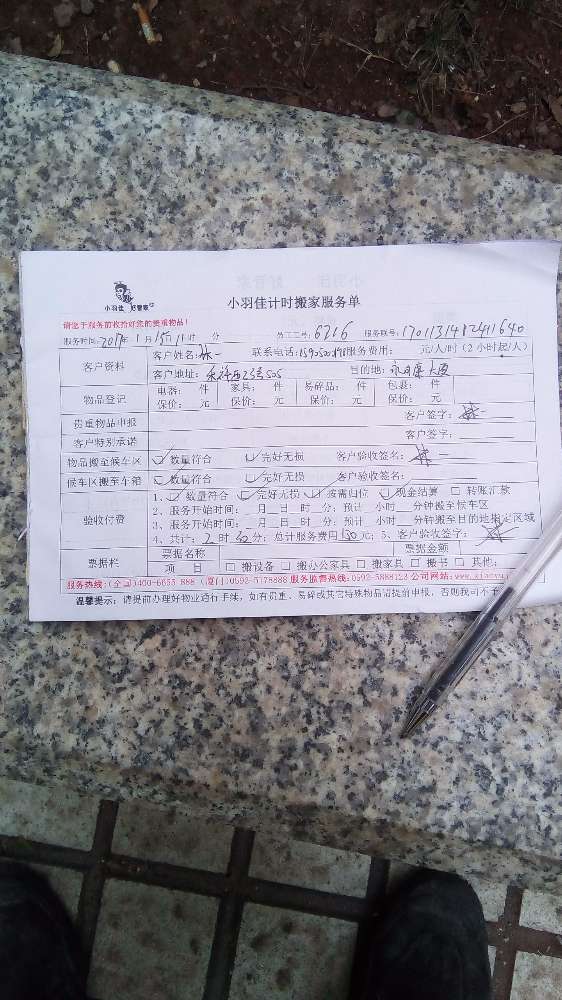 小羽佳 好管家
小羽佳计时搬家服务单
请您于服务前收拾好您的贵重物品!
服务时间:2017年1月15日11时 分 员工工号:6716 服务联号:170113148241640
客户资料 客户姓名: 联系电话: 服务费用: 元/人/时(2小时起/人)
客户地址: 505 目的地:
物品登记 电器: 件 家具: 件 易碎品: 件 包裹: 件
保价: 元 保价: 元 保价: 元 保价: 元
贵重物品申报 客户签字:
客户特别承诺 客户签字:
物品搬至候车区 ☑数量符合 ☑完好无损 客户验收签名:
候车区搬至车箱 ☑数量符合 ☑完好无损 客户验收签名:
验收付费 1、☑数量符合 ☑完好无损 ☑按需归位 ☑现金结算 □转账汇款
2、服务开始时间: 月 日 时 分;预计 小时 分钟搬至候车区
3、服务开始时间: 月 日 时 分;预计 小时 分钟搬至目的地指定区域
4、共计:2时 分;总计服务费用 元;5、客户验收签字:
票据栏 票据名称 票据金额
项 目 □搬设备 □搬办公家具 □搬家具 □搬书 □其他:
服务热线:(全国)400-6655 888 (厦门)0592-5178888 服务监督热线:0592-5888123 公司网站:www.
温馨提示:请提前办理好物业通行手续,如有贵重、易碎或其它特殊物品需提前申报,否则我司不予